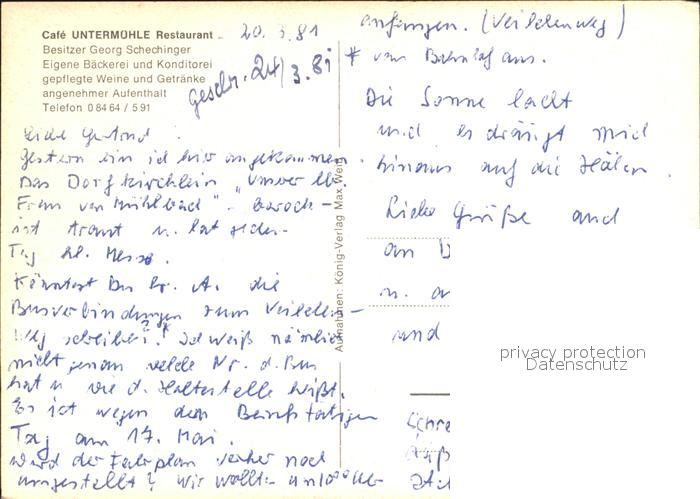 Café UNTERMÜHLE Restaurant
20. 3. 81
Besitzer Georg Schechinger
Eigene Bäckerei und Konditorei
gepflegte Weine und Getränke
angenehmer Aufenthalt
Telefon 0 84 64 / 5 91
geschr. 24/3.81
Liebe
Gestern bin ich hier angekommen.
Das Dorfkirchlein „Unser lb.
Frau von Mühlbach" - barock -
ist u. hat
Tag hl. Messe.
Könntest Du die
Busverbindungen zum Veilchen-
weg schreiben? * Ich weiß nämlich
nicht genau welche Nr. d. Bus
hat u. wie d. Haltestelle heißt.
Es ist wegen dem
Tag am 17. Mai.
Wird der Fahrplan vorher noch
umgestellt? Wir wollten
Aufnahmen: König-Verlag Max Werg
anfangen. (Veilchenweg)
* vom Bahnhof aus.
Die Sonne lacht
und es drängt mich
hinaus auf die Höhen.
Liebe Grüße auch
an
u.
und
privacy protection
Datenschutz